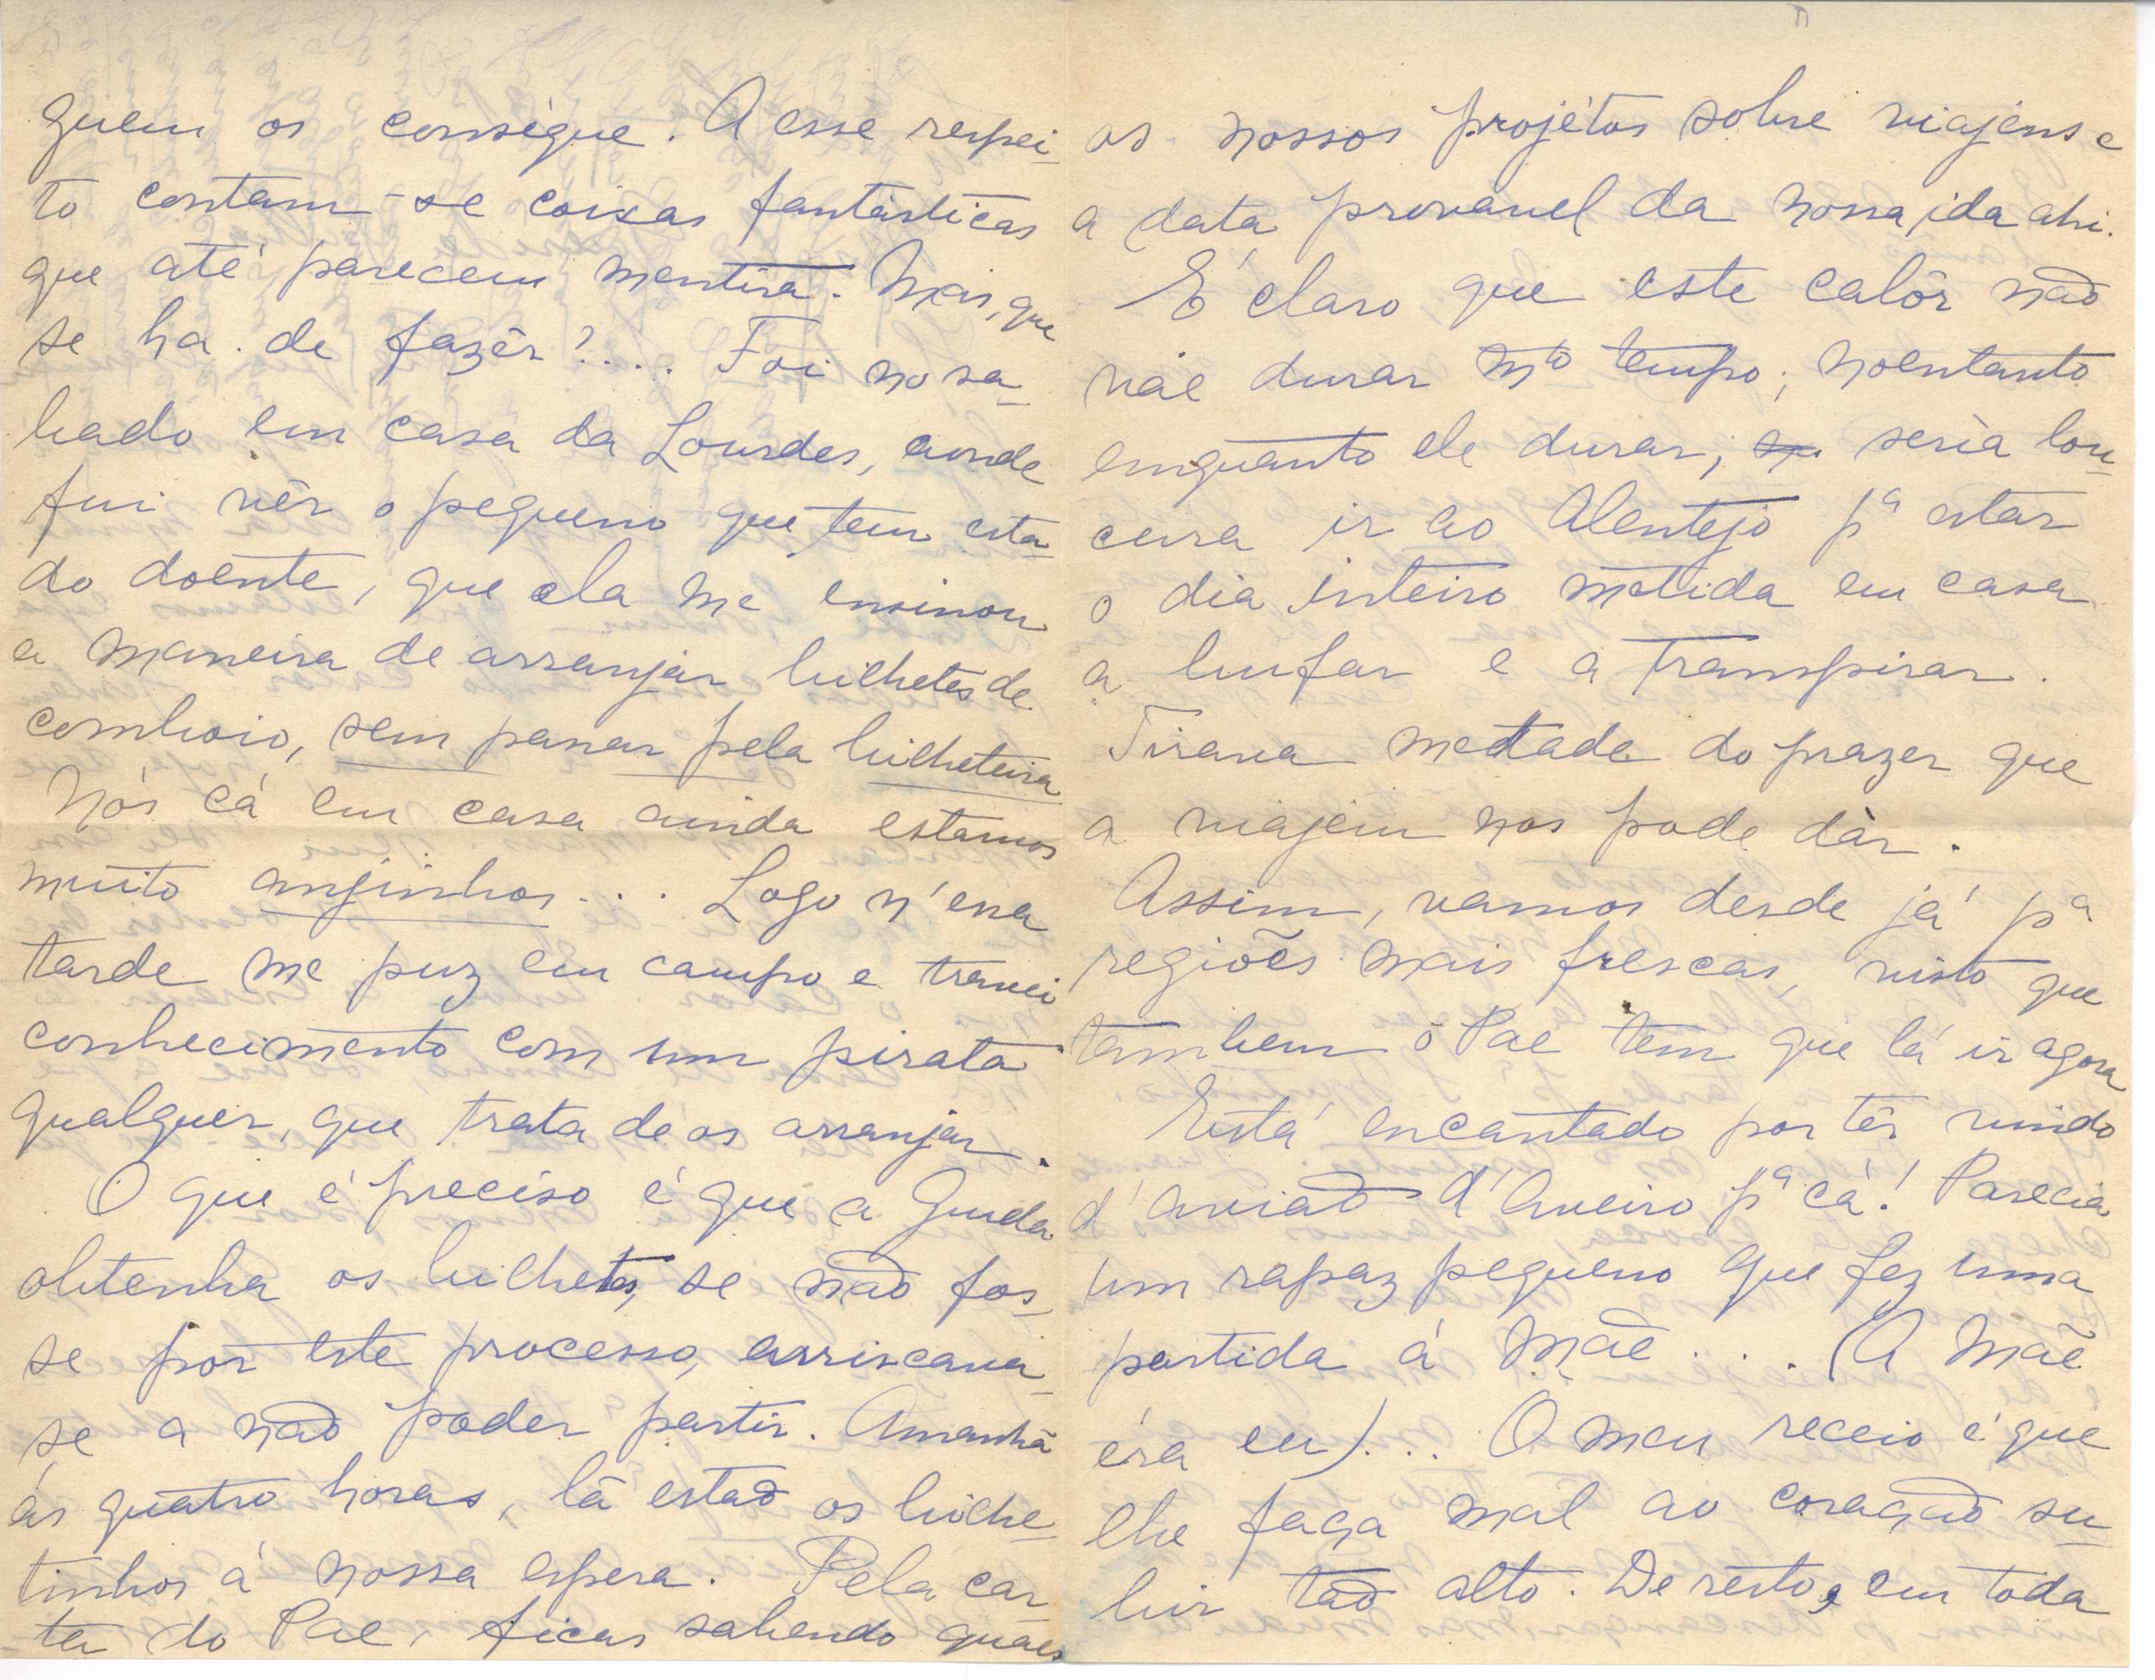 quem os conségue. A esse respei-
to contam-se coisas fantásticas
que até parecem mentira. Mas, que
se ha de fazêr?.... Foi no sa-
bado em casa da Lourdes, aonde
fui vêr o pequeno que tem esta-
do doente, que ela me ensinou
a maneira de arranjar bilhetes de
comboio, sem passar pela bilheteira
Nós cá em casa ainda estamos
muito anjinhos... Logo n'essa
tarde me puz em campo e travei
conhecimento com um pirata
qualquer, que trata de os arranjar.
O que é preciso é que a Guida
obtenha os bilhetes, se não fos-
se por este processo, arriscava-
se a não poder partir. Amanhã
ás quatro horas, lá estaõ os bilhe-
tinhos á nossa espera. Pela car-
ta do Pae, ficas sabendo quaes
os nossos projétos sobre viajens e
a data provavel da nossa ida ahi.
E' claro que este calôr não
váe durar mto tempo; noentanto
emquanto ele durar, seria lou-
cura ir ao Alentejo pª estar
o dia inteiro metida em casa
a bufar e a transpirar.
Tirava metade do prazer que
a viajem nos pode dàr.
Assim, vamos desde já pª
regiões mais frescas, visto que
tambem o Pae tem que lá ir agora
Está encantado por têr vindo
d'aviaõ d'Aveiro pª cá! Parecia
um rapaz pequeno que fez uma
partida á Mãe... (A Mãe
éra eu)... O meu receio é que
lhe faça mal ao coração su-
bir taõ alto. De resto, em toda